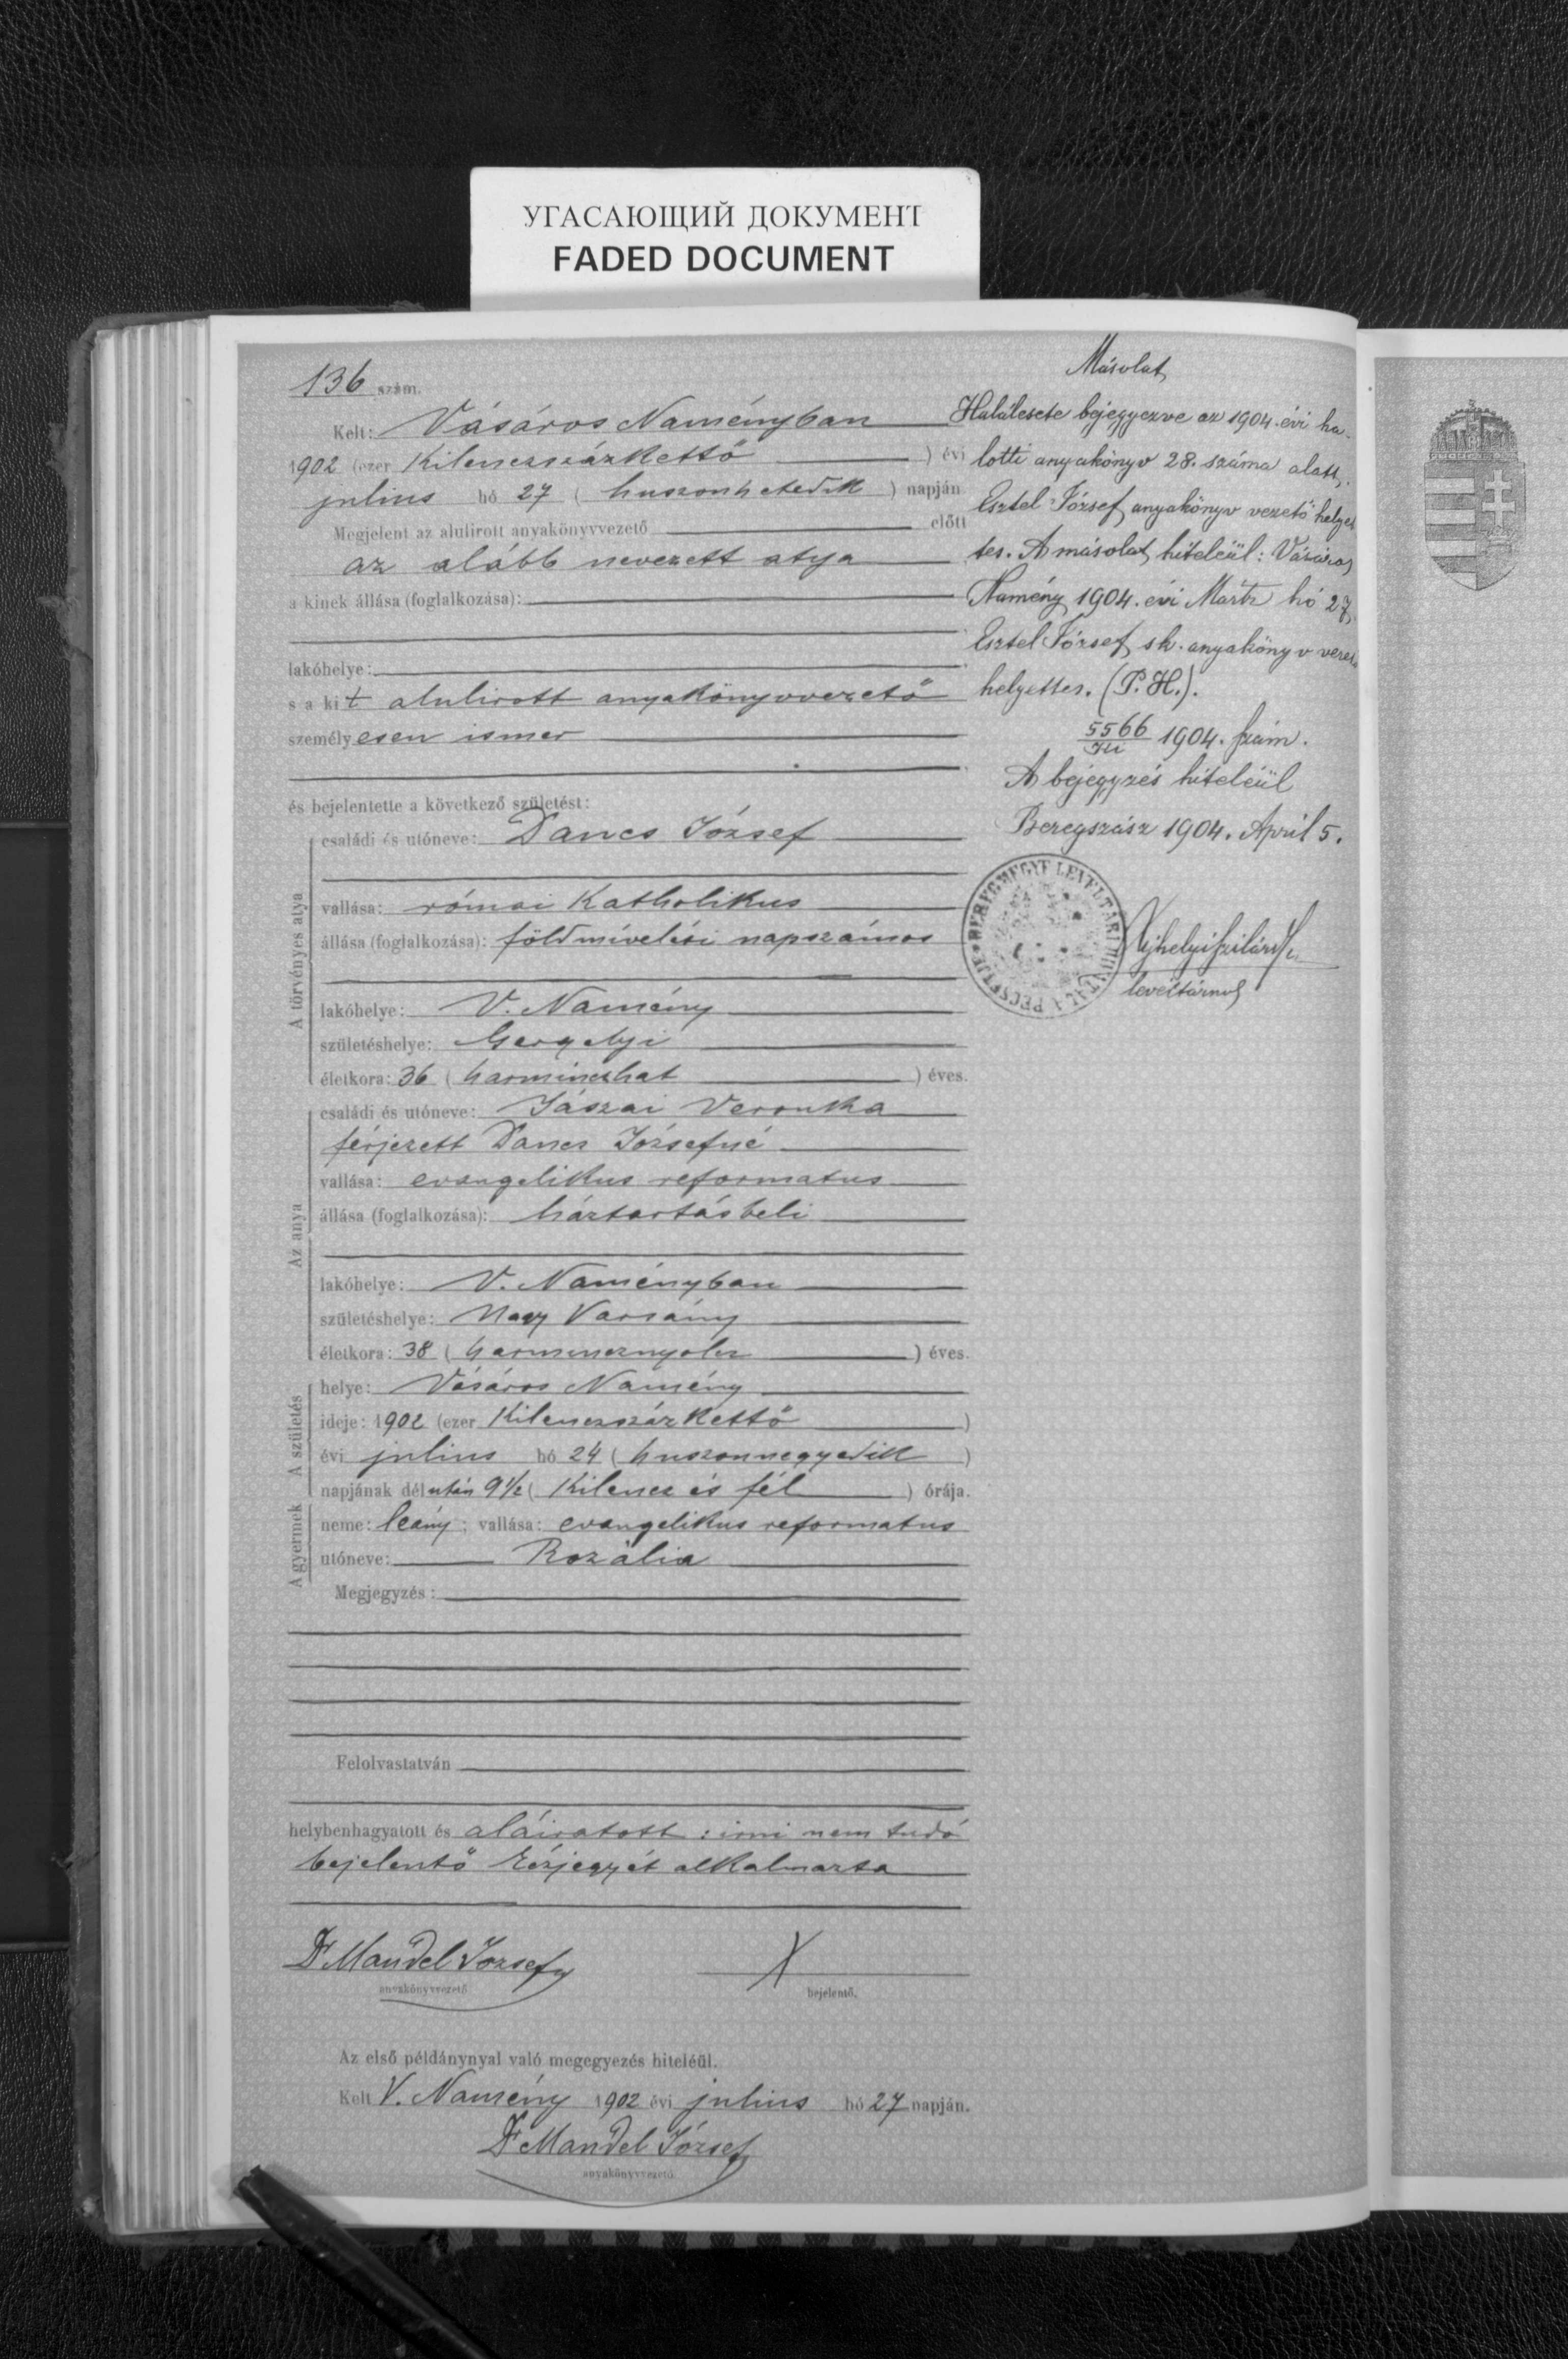 УГАСАЮЩИЙ ДОКУМЕНТ
FADED DOCUMENT
136 szám.
Kelt: Vásáros Naményban
1902 (ezer Kilenczszázkettő ) évi
julius hó 27 ( huszonhetedik ) napján
Megjelent az alulirott anyakönyvvezető előtt
az alább nevezett atya
a kinek állása (foglalkozása):
lakóhelye:
s a kit alulirott anyakönyvvezető
személyesen ismer
és bejelentette a következő születést:
A törvényes atya
családi és utóneve: Dancs József
vallása: római Katholikus
állása (foglalkozása): földmívelési napszámos
lakóhelye: V. Namény
születéshelye: Gergelyi
életkora: 36 ( harminczhat ) éves.
Az anya
családi és utóneve: Jászai Veronka
férjezett Dancs Józsefné
vallása: evangelikus reformatus
állása (foglalkozása): háztartásbeli
lakóhelye: V. Naményban
születéshelye: Nagy Varsány
életkora: 38 ( harmincznyolcz ) éves.
A születés
helye: Vásáros Namény
ideje: 1902 (ezer Kilenczszázkettő )
évi julius hó 24 ( huszonnegyedik )
napjának délután 9 1/2 ( Kilencz és fél ) órája.
A gyermek
neme: leány; vallása: evangelikus reformatus
utóneve: Rozália
Megjegyzés:
Felolvastatván
helybenhagyatott és aláiratott: irni nem tudó
bejelentő kézjegyét alkalmazta
Dr Mandel József X
anyakönyvvezető bejelentő.
Az első példánynyal való megegyezés hiteléül.
Kelt V. Namény 1902 évi julius hó 27 napján.
Dr Mandel József
anyakönyvvezető
Másolat
Halálesete bejegyezve az 1904. évi ha-
lotti anyakönyv 28. száma alatt.
Esztel József anyakönyv vezető helyet
tes. A másolat hiteléül: Vásáros
Namény 1904. évi Márcz hó 27
Esztel József sk. anyakönyv vezető
helyettes. (P. H.).
5566 1904. szám.
A bejegyzés hiteléül
Beregszász 1904. April 5.
BEREGMEGYE LEVÉLTÁRI HIVATALA PECSÉTJE
Ujhelyi Szilárd
levéltárnok